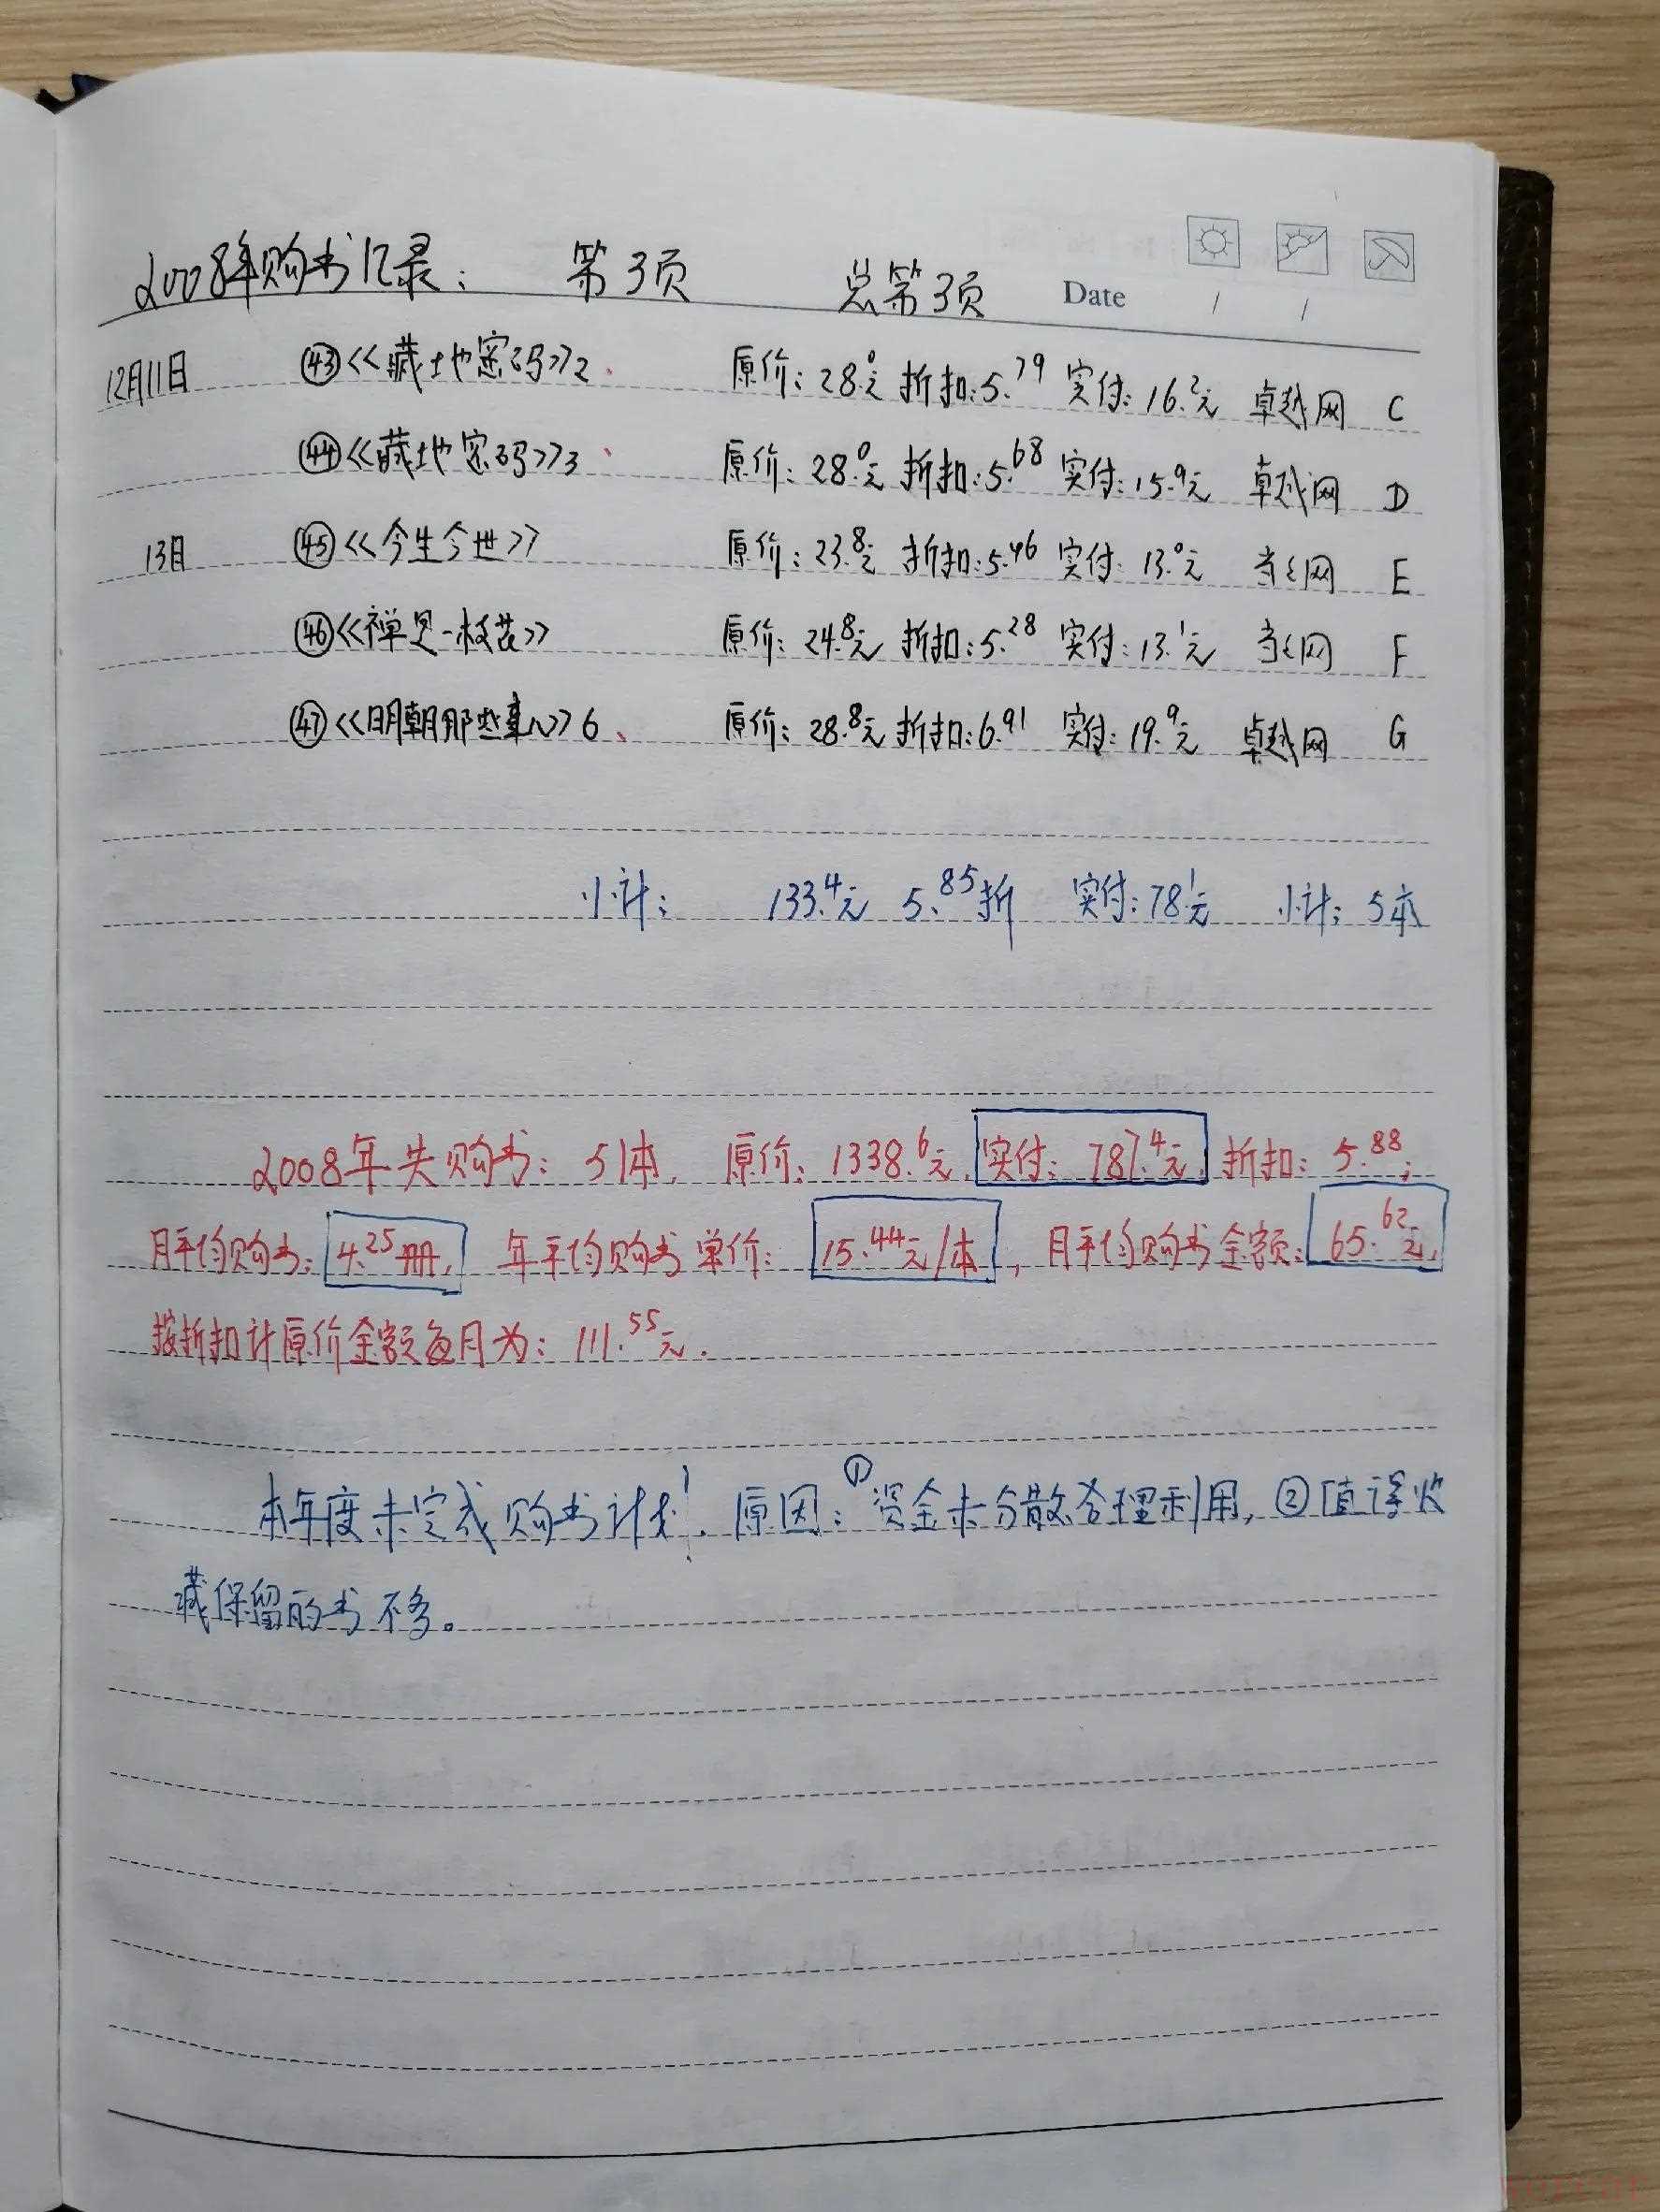 2008年购书记录: 第3页 总第3页 Date / /
12月11日 ㊸《藏地密码》2 原价:28.0元 折扣:5.79 实付:16.2元 卓越网 C
㊹《藏地密码》3 原价:28.0元 折扣:5.68 实付:15.9元 卓越网 D
13日 ㊺《今生今世》 原价:23.8元 折扣:5.46 实付:13.0元 当当网 E
㊻《禅是一枝花》 原价:24.8元 折扣:5.28 实付:13.1元 当当网 F
㊼《明朝那些事儿》6 原价:28.8元 折扣:6.91 实付:19.9元 卓越网 G
小计: 133.4元 5.85折 实付:78.1元 小计:5本
2008年共购书:51本, 原价:1338.6元, 实付:787.4元, 折扣:5.88;
月平均购书:4.25册, 年平均购书单价:15.44元/本, 月平均购书金额:65.62元,
按折扣计原价金额每月为:111.55元.
本年度未完成购书计划. 原因:①资金未分散合理利用, ②值得收
藏保留的书不多。